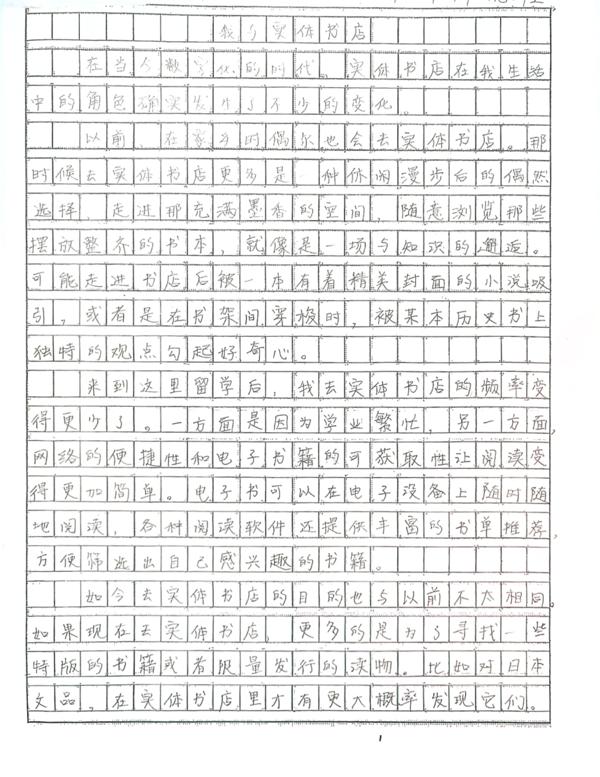 我与实体书店
在当今数字化的时代，实体书店在我生活
中的角色确实发生了不少的变化。
以前，在家乡时偶尔也会去实体书店。那
时候去实体书店更多是一种休闲漫步后的偶然
选择，走进那充满墨香的空间，随意浏览那些
摆放整齐的书本，就像是一场与知识的邂逅。
可能走进书店后被一本有着精美封面的小说吸
引，或者是在书架间穿梭时，被某本历史书上
独特的观点勾起好奇心。
来到这里留学后，我去实体书店的频率变
得更少了。一方面是因为学业繁忙，另一方面，
网络的便捷性和电子书籍的可获取性让阅读变
得更加简单。电子书可以在电子设备上随时随
地阅读，各种阅读软件还提供丰富的书单推荐，
方便筛选出自己感兴趣的书籍。
如今去实体书店的目的也与以前不太相同。
如果现在去实体书店，更多的是为了寻找一些
特版的书籍或者限量发行的读物。比如对日本
文品，在实体书店里才有更大概率发现它们。
1